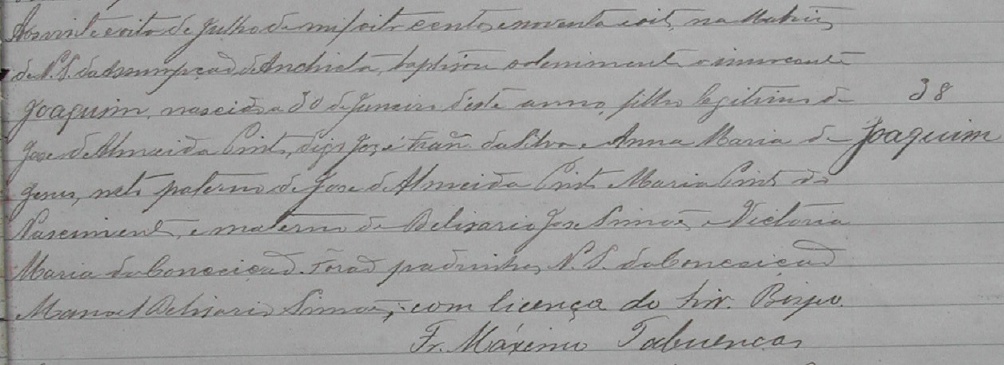 Aos vinte e oito de Julho de mil oito cento e noventa e oito, na Matriz
de N. S. da Assumpção de Anchieta, baptisou solenimente o innocente
Joaquim, nascido a 30 de Janeiro deste anno, filho legitimo de
38
Jose de Almeida Pinto, digo José Fran da Silva e Anna Maria de
Joaquim
Jesus, neto paterno de Jose de Almeida Pinto Maria Pinto do
Nascimento, e materno de Belisario Jose Simoẽs e Victoria
Maria da Conceicaõ. Foraõ padrinhos, N. S. da Conceiçaõ
Manoel Belisario Simoẽs, com licença do Bispo.
Fr. Máximo Tabuencas